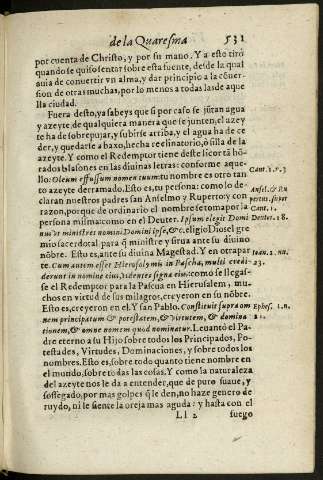 de la Quaresma 531
por cuenta de Christo, y por su mano. Y a esto tirò
quando se quiso sentar sobre esta fuente, desde la qual
auia de conuertir vn alma, y dar principio a la cõuer-
sion de otras muchas, por lo menos a todas las de aque
lla ciudad.
Fuera desto, ya sabeys que si por caso se jũtan agua
y azeyte de qualquiera manera que se junten, el azey
te ha de sobrepujar, y subirse arriba, y el agua ha de ce
der, y quedarse a baxo, hecha reclinatorio, ò silla de la
azeyte. Y como el Redemptor tiene deste licor tã hõ-
rados blasones en las diuinas letras: conforme aque-
llo: Oleum effussum nomen tuum: tu nombre es otro tan
to azeyte derramado. Esto es, tu persona: como lo de-
claran nuestros padres san Anselmo y Ruperto: y con
razon, porque de ordinario el nombre se toma por la
persona misma: como en el Deuter. Ipsum elegit Domi
nus vt ministret nomini Domini ipse, &c. eligio Dios el gre
mio sacerdotal para q̃ ministre y sirua ante su diuino
nõbre. Esto es, ante su diuina Magestad. Y en otra par
te. Cum autem esset Hierosolymis in Pascha, multi credi-
derunt in nomine eius, videntes signa eius: como se llegas-
se el Redemptor para la Pascua en Hierusalem, mu-
chos en virtud de sus milagros, creyeron en su nõbre.
Esto es, creyeron en el. Y san Pablo. Constituit supra om
nem principatum & potestatem, & virtutem, & domina
tionem, & omne nomem quod nominatur. Leuantò el Pad
re eterno a su Hijo sobre todos los Principados, Po-
testades, Virtudes, Dominaciones, y sobre todos los
nombres. Esto es, sobre todo quanto tiene nombre en
el mundo, sobre todas las cosas. Y como la naturaleza
del azeyte nos le da a entender, que de puro suaue, y
sossegado, por mas golpes q̃ le den, no haze genero de
ruydo, ni le siente la oreja mas aguda: y hasta con el
Ll 2 fuego
Cant. 1. v. 3
Ansel. & Ru
pertus. super
Cant. 1.
Deuter. 18.
Ioan. 2. nu.
23.
Ephes. 1. n.
21.